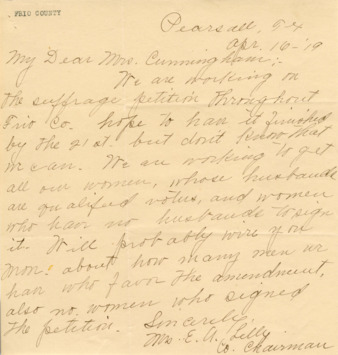 FRIO COUNTY
Pearsall, Tex
Apr. 16-'19
My Dear Mrs. Cunningham:-
We are working on
the suffrage petition throughout
Frio Co. hope to hav it finished
by the 21st. but dont know that
we can. We are working to get
all our women, whose husbands
are qualified voters, and women
who hav no husbands to sign
it. Will probably wire you
Mon. about how many men we
hav who favor the amendment,
also no. women who signed
the petition.
Sincerely,
Mrs. E. A. Lilly
Co. Chairman